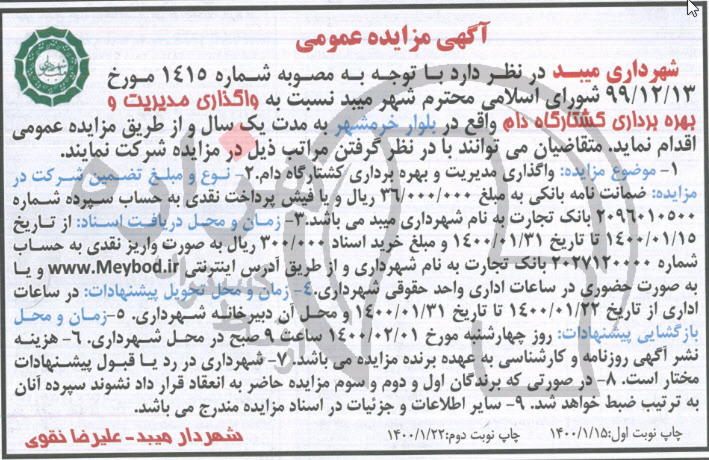 آگهی مزایده عمومی
شهرداری میبد در نظر دارد با توجه به مصوبه شماره ۱۴۱۵ مورخ
۹۹/۱۲/۱۳ شورای اسلامی محترم شهر میبد نسبت به واگذاری مدیریت و
بهره برداری کشتارگاه دام واقع در بلوار خرمشهر به مدت یک سال و از طریق مزایده عمومی
اقدام نماید. متقاضیان می توانند با در نظر گرفتن مراتب ذیل در مزایده شرکت نمایند.
۱- موضوع مزایده: واگذاری مدیریت و بهره برداری کشتارگاه دام.۲- نوع و مبلغ تضمین شرکت در
مزایده: ضمانت نامه بانکی به مبلغ ۳۶/۰۰۰/۰۰۰ ریال و یا فیش پرداخت نقدی به حساب سپرده شماره
۲۰۹۶۰۱۰۵۰۰ بانک تجارت به نام شهرداری میبد می باشد.۳- زمان و محل دریافت اسناد: از تاریخ
۱۴۰۰/۰۱/۱۵ تا تاریخ ۱۴۰۰/۰۱/۳۱ و مبلغ خرید اسناد ۳۰۰/۰۰۰ ریال به صورت واریز نقدی به حساب
شماره ۲۰۲۷۱۲۰۰۰۰ بانک تجارت به نام شهرداری و از طریق آدرس اینترنتی www.Meybod.ir و یا
به صورت حضوری در ساعات اداری واحد حقوقی شهرداری.۴- زمان و محل تحویل پیشنهادات: در ساعات
اداری از تاریخ ۱۴۰۰/۰۱/۲۲ تا تاریخ ۱۴۰۰/۰۱/۳۱ و محل آن دبیرخانه شهرداری. ۵-زمان و محل
بازگشایی پیشنهادات: روز چهارشنبه مورخ ۱۴۰۰/۰۲/۰۱ ساعت ۹ صبح در محل شهرداری. ۶- هزینه
نشر آگهی روزنامه و کارشناسی به عهده برنده مزایده می باشد. ۷- شهرداری در رد یا قبول پیشنهادات
مختار است. ۸- در صورتی که برندگان اول و دوم و سوم مزایده حاضر به انعقاد قرار داد نشوند سپرده آنان
به ترتیب ضبط خواهد شد. ۹- سایر اطلاعات و جزئیات در اسناد مزایده مندرج می باشد.
چاپ نوبت اول:۱۴۰۰/۱/۱۵ چاپ نوبت دوم:۱۴۰۰/۱/۲۲ شهردار میبد- علیرضا نقوی